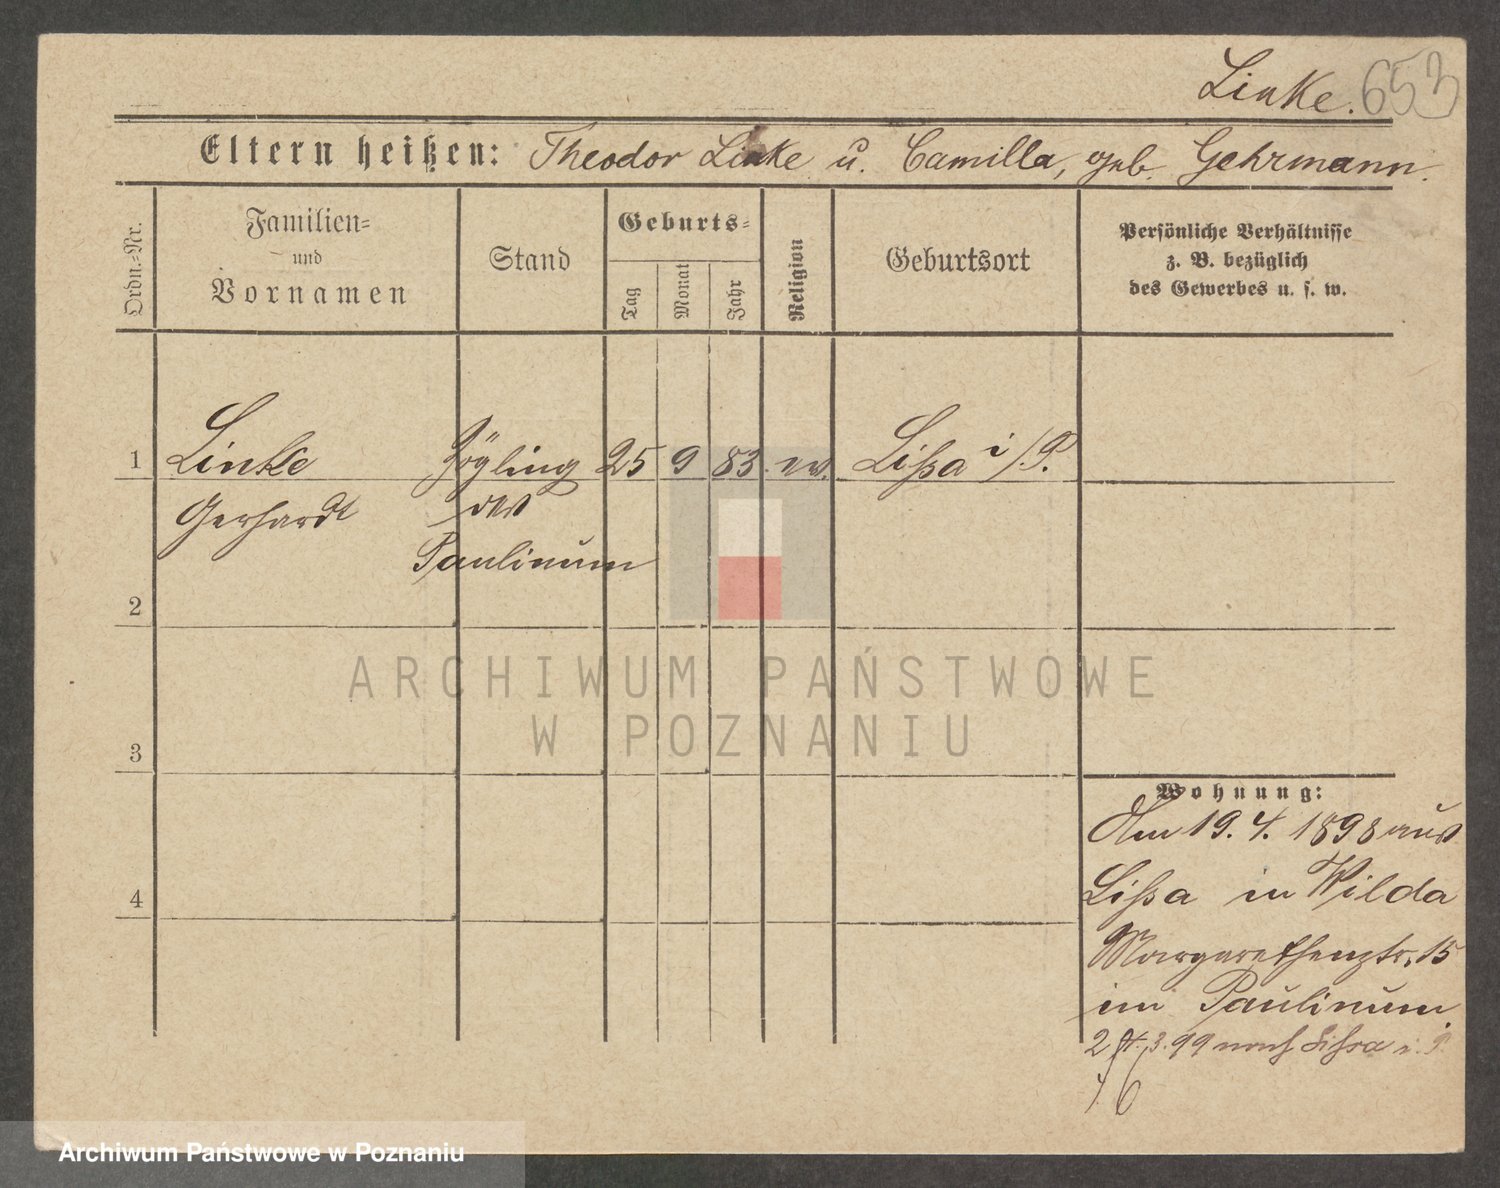 Linke. 653
Eltern heißen: Theodor Linke u. Camilla, geb. Gehrmann.
Ordn.-Nr.
Familien-
und
Vornamen
Stand
Geburts-
Tag
Monat
Jahr
Religion
Geburtsort
Persönliche Verhältnisse
z. B. bezüglich
des Gewerbes u. s. w.
1 Linke Zögling 25 9 83. ev. Lissa i/P.
Gerhardt des
Paulinum
2
3
4
Wohnung:
Am 19. 4. 1898 aus
Lissa in Wilda
Margarethenstr. 15
im Paulinum.
3. 99 nach Lissa i. P.
ARCHIWUM PAŃSTWOWE
W POZNANIU
Archiwum Państwowe w Poznaniu